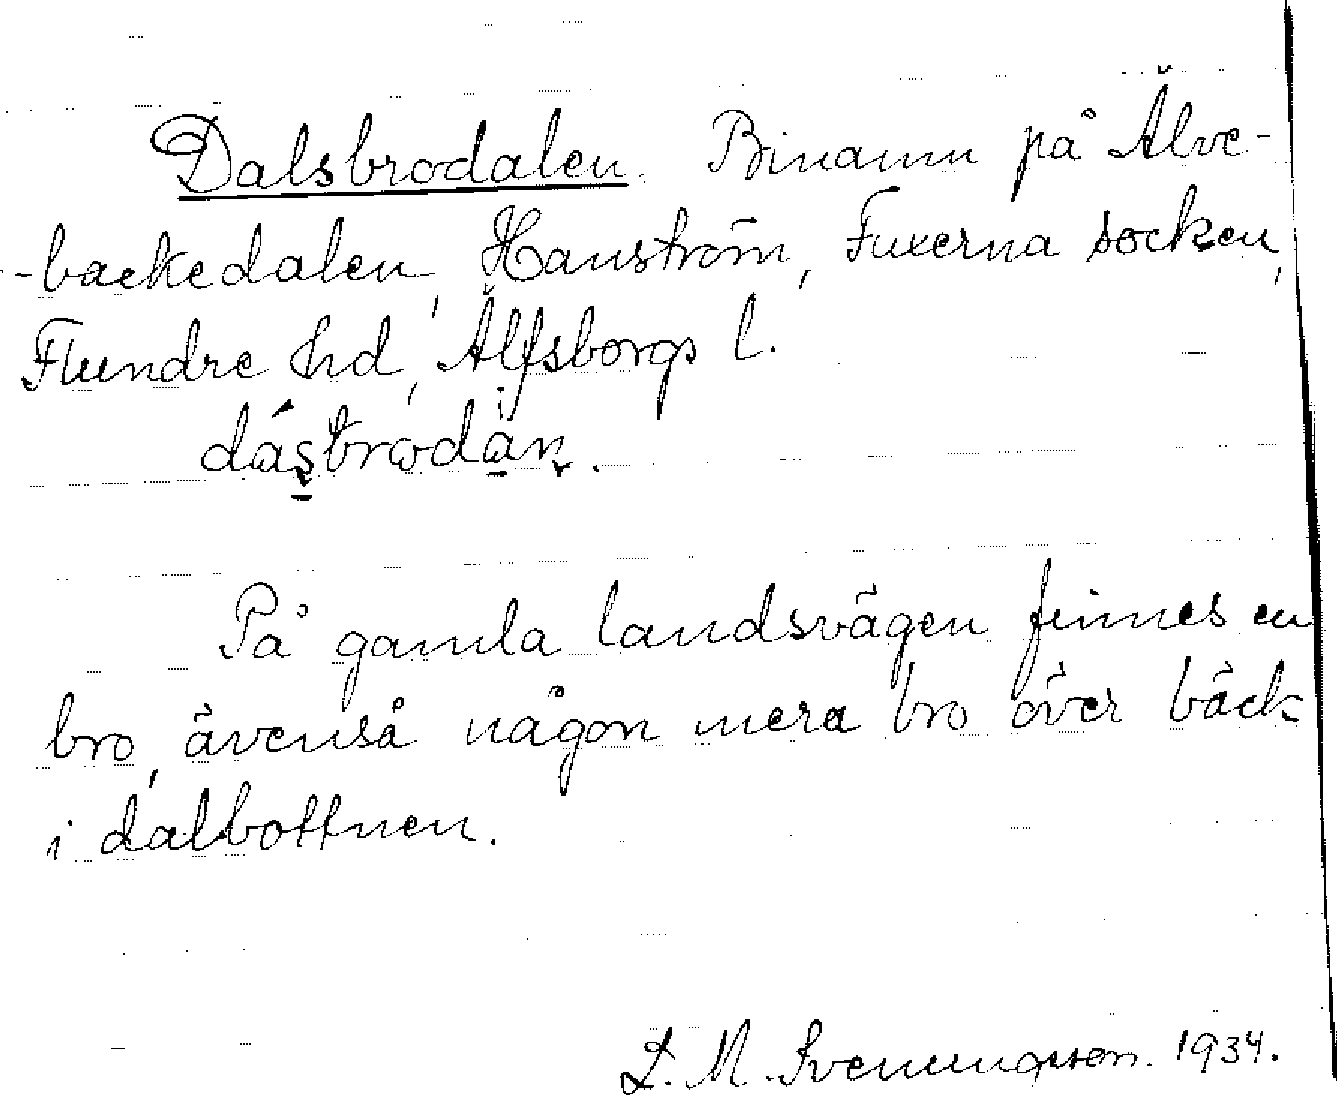 Dalsbrodalen. Binamn på Älve-
-backedalen, Hanström, Fuxerna socken,
Flundre hd, Älfsborgs l.
På gamla landsvägen finnes en
bro, ävenså någon mera bro över bäck
i dalbottnen.
L. M. Svenungsson. 1934.